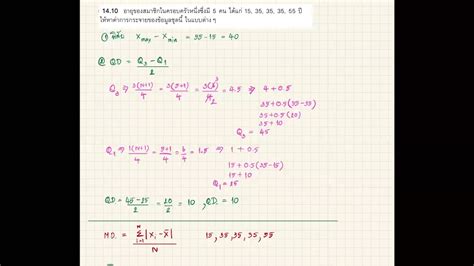 14.10 อายุของสมาชิกในครอบครัวหนึ่งซึ่งมี 5 คน ได้แก่ 15, 35, 35, 35, 55 ปี
ให้หาค่าการกระจายของข้อมูลชุดนี้ ในแบบต่าง ๆ
① พิสัย Xmax − Xmin = 55-15 = 40
② QD = (Q3 − Q1)/2
Q3 ⇒ 3(N+1)/4 = 3(5+1)/4 = 3(6)/4 = 4.5 ⇒ 4 + 0.5
35+0.5(55-35)
35+0.5(20)
35+10
Q3 = 45
Q1 ⇒ 1(N+1)/4 = (5+1)/4 = 6/4 = 1.5 ⇒ 1 + 0.5
15+0.5(35-15)
15+10
Q1 = 25
QD = (45-25)/2 = 20/2 = 10 , QD = 10
M.D. = Σ|xi − x̄|/N 15, 35, 35, 35, 55